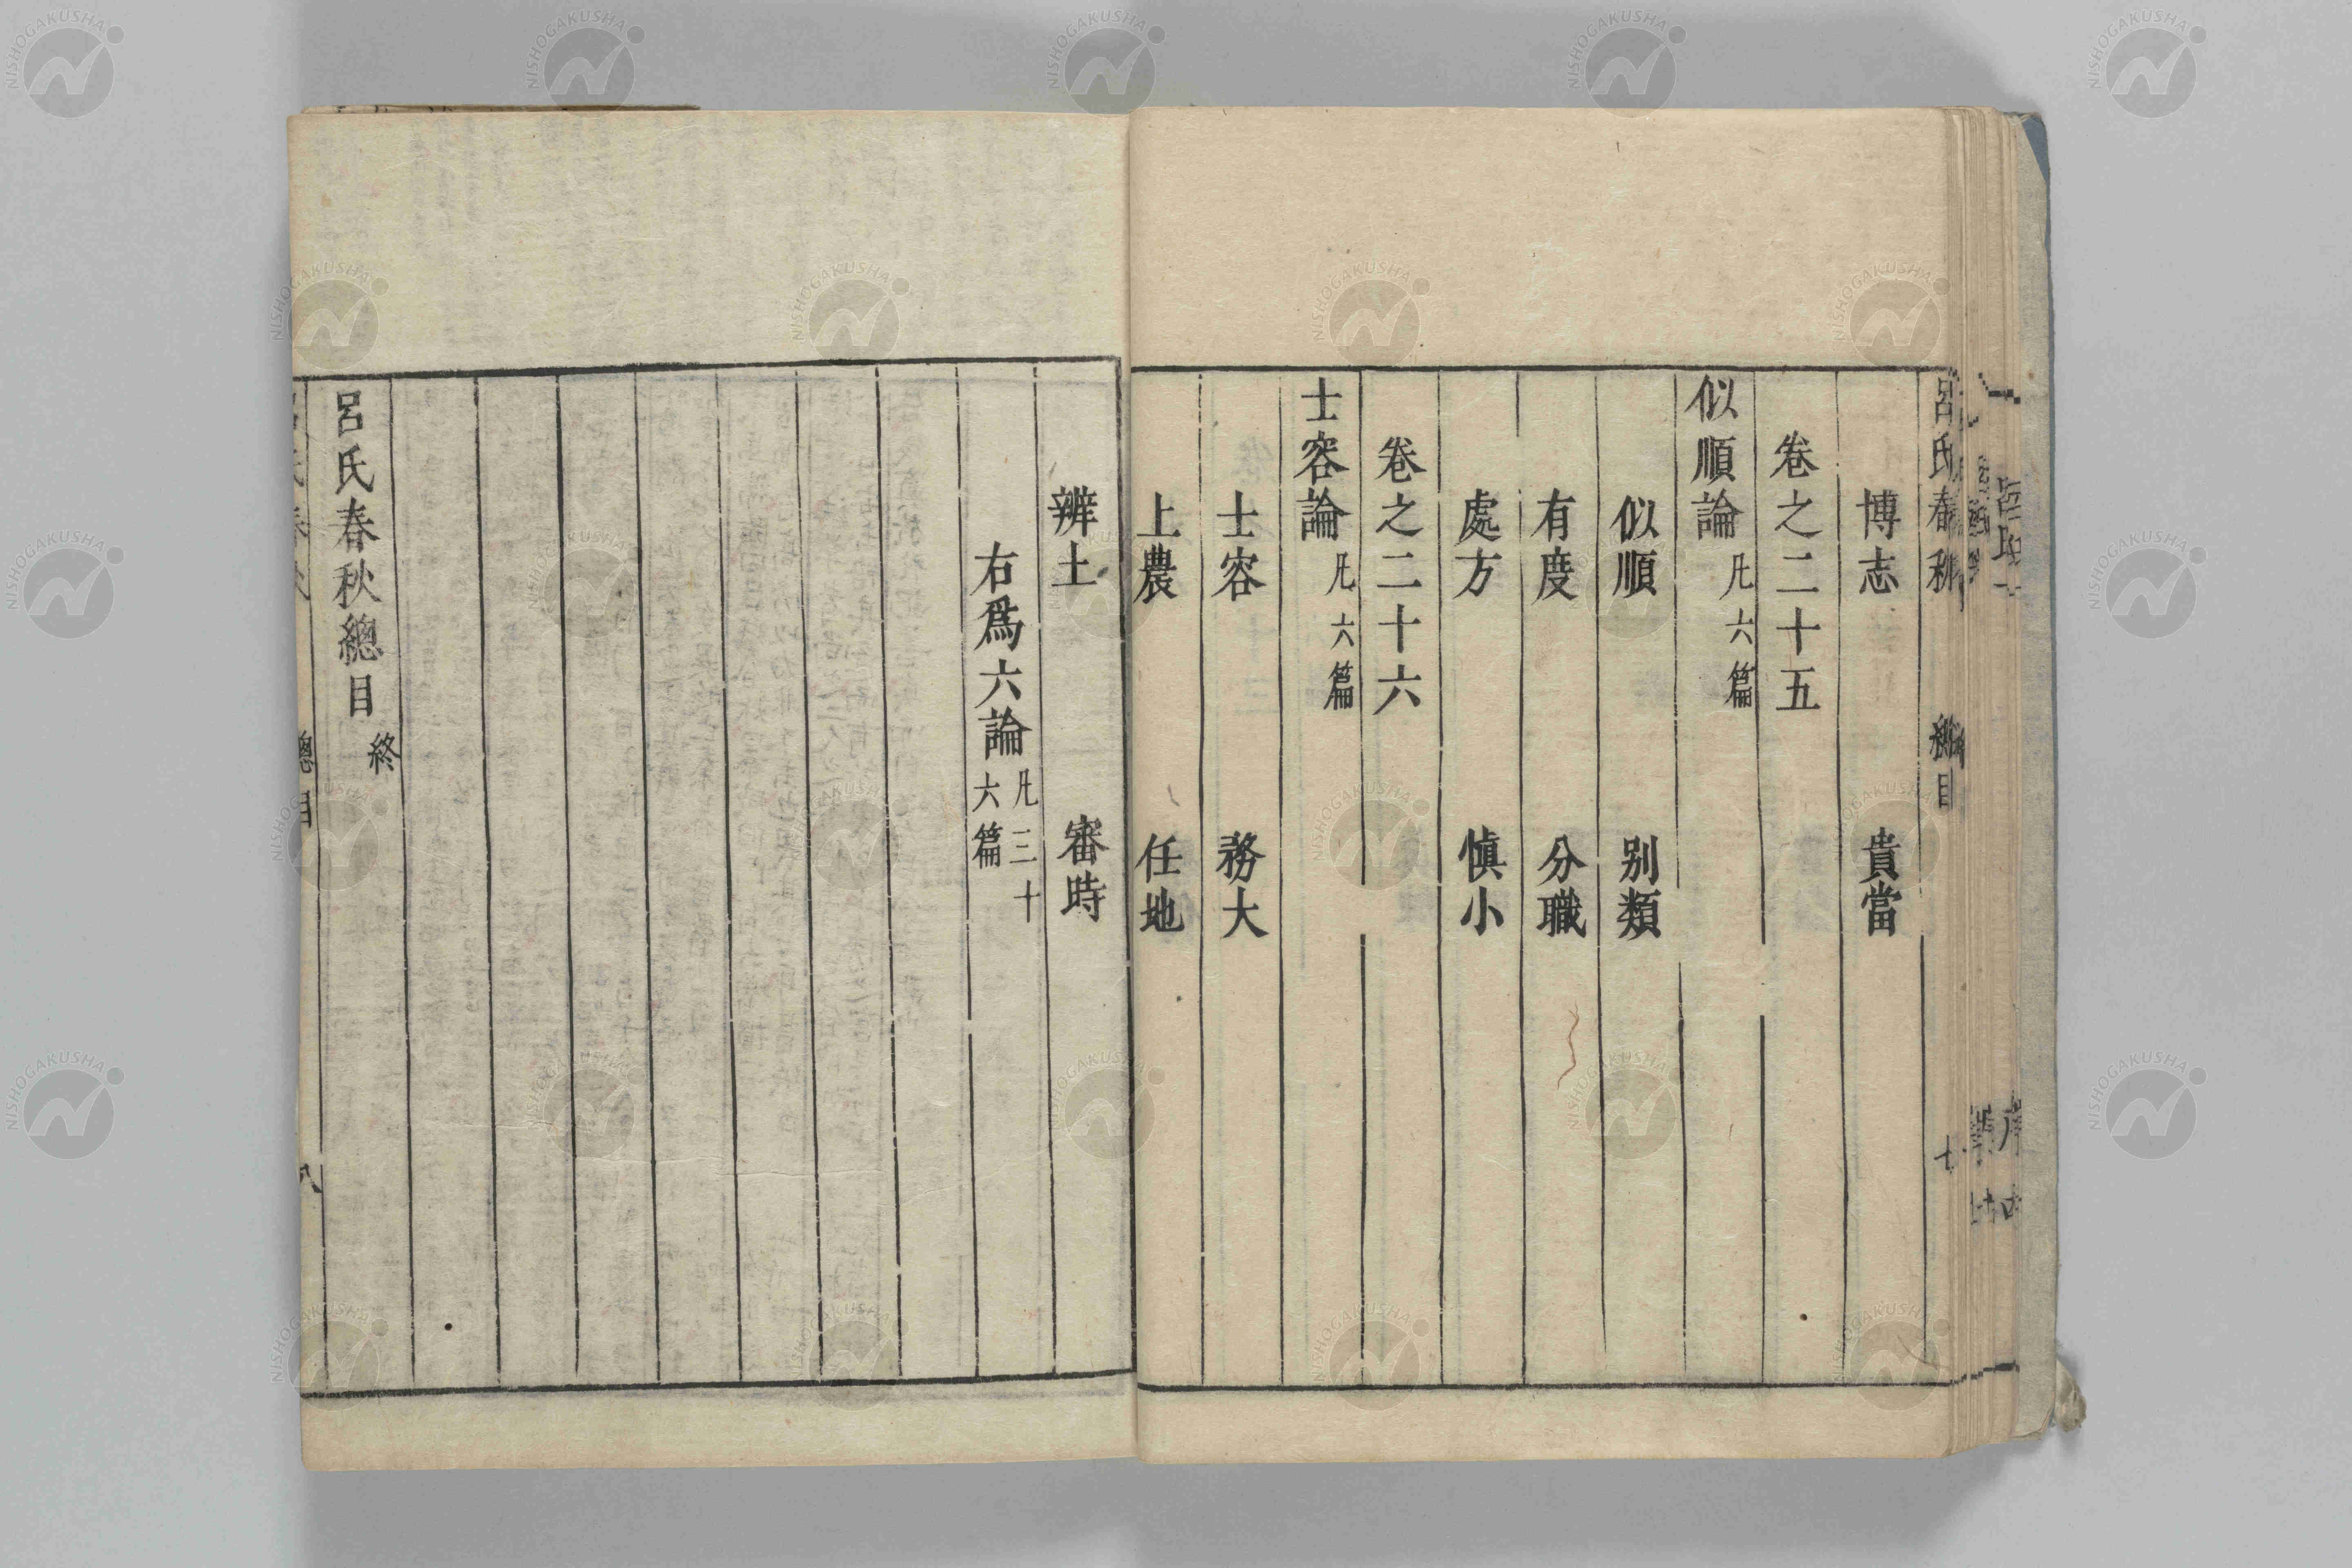 呂氏春秋 總目 七
博志 貴當
卷之二十五
似順論 凡六篇
似順 别類
有度 分職
處方 慎小
卷之二十六
士容論 凡六篇
士容 務大
上農 任地
辨土 審時
右爲六論 凡三十六篇
呂氏春秋總目 終
總目 八
NISHOGAKUSHA